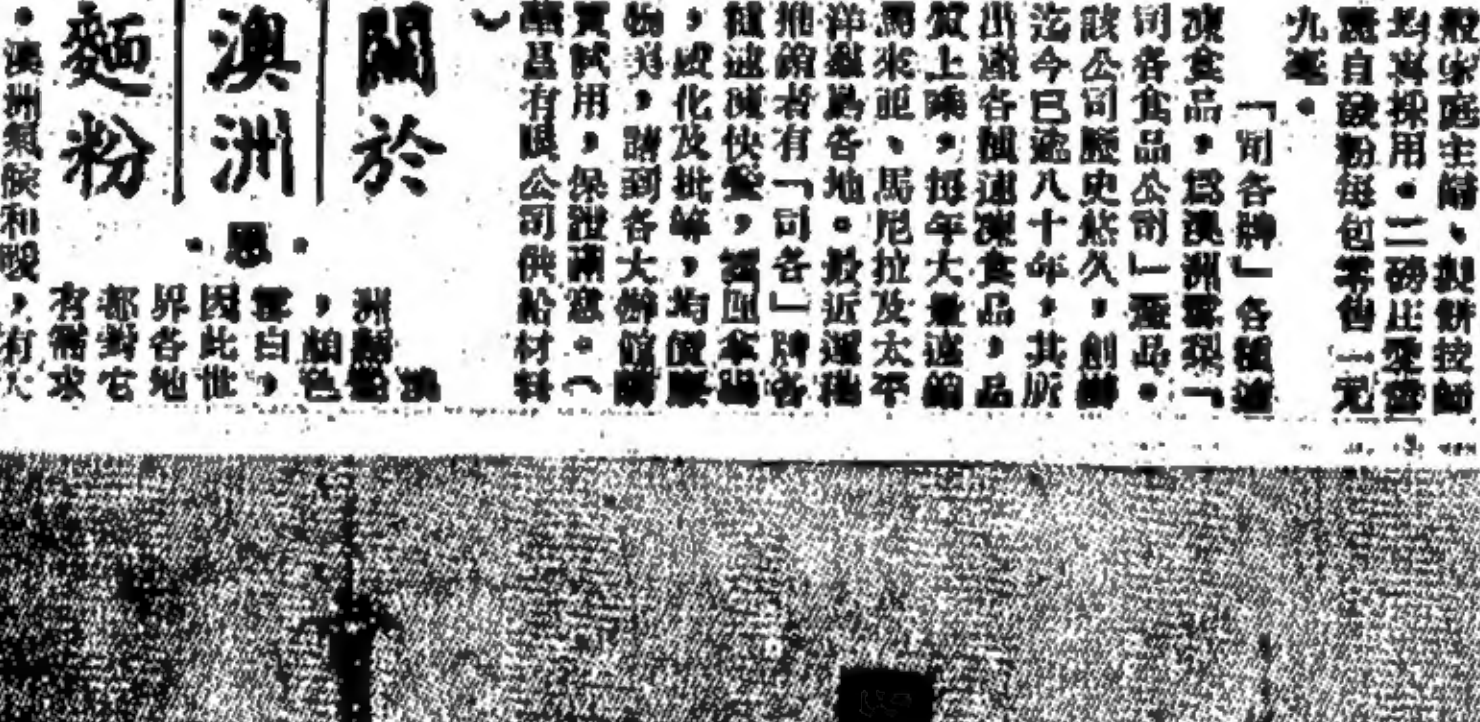 般家庭主婦、製餅技師
均喜採用。二磅庄雙
自發粉每包零售一元
九毫。
「司各牌」各種速
凍食品,爲澳洲雪梨「
司各食品公司」產品。
該公司歷史悠久,創辦
迄今已逾八十年,其所
出產各種速凍食品,品
質上乘,每年大量遠銷
馬來亞、馬尼拉及太平
洋羣島各地。最近運港
推銷者有「司各」牌各
種速凍快餐,
,威化及批等,均價廉
物美,請到各大辦館購
買試用,保證滿意。(
昌有限公司供給材料
)
關於
澳洲
麵粉
·恩·
澳
洲麵粉
,顏色
雪白,
因此世
界各地
都對它
有需求
。澳洲氣候和暖,有大